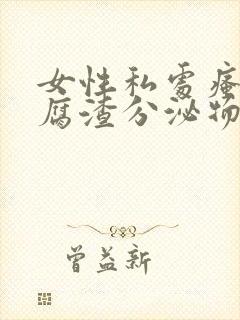 女性私處瘙
腐渣分泌物
曾益新